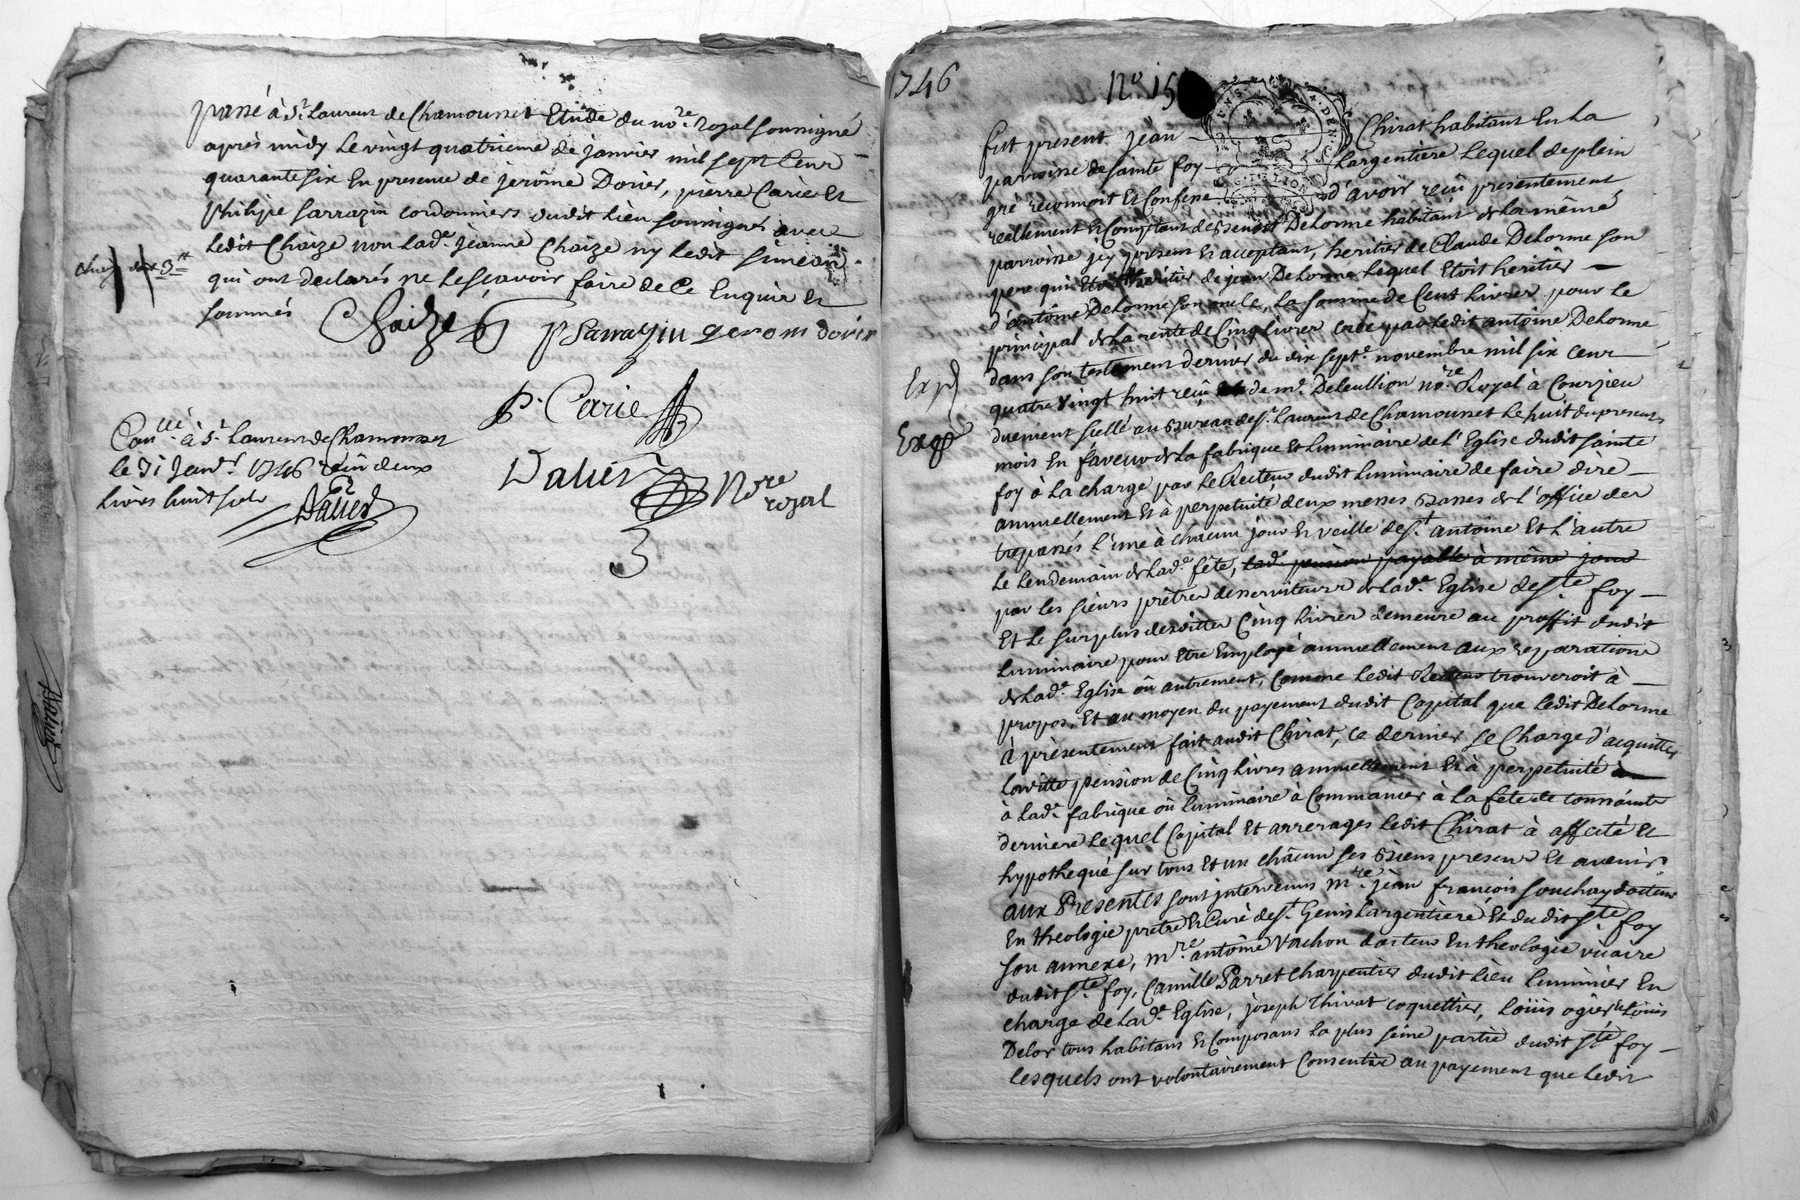 passé à St Laurent de Chamousset Etude du nore Royal soussigné
après midy le vingt quatrieme de janvier mil sept Cent
quarante six En presence de jerôme Dorier, pierre Carie Et
Philipe Sarrazin cordonniers dudit lieu soussignés avec
ledit Chaize non lade jeanne Chaize ny ledit Siméon
qui ont declarés ne le sçavoir faire de ce Enquis Et
sommés
Chaize P Sarrazin gerom dorier
P. Carie
Dalier Nore
royal
3
Conllé à St Laurent de Chamousset
le 31 Janvr 1746 reçu deux
livres huit sols
Dalier
1746
No 15
fut present jean Chirat habitant En la
parroisse de Sainte foy Largentiere Lequel de plein
gré reconnoit Et Confesse d'avoir reçû presentement
reellement Et Comptant de Benoist Delorme habitant de la même
parroisse jcy present Et acceptant, heritier de Claude Delorme son
pere qui Etoit heritier de jean Delorme Lequel Etoit heritier
d'antoine Delorme son oncle, La somme de Cent Livres pour le
principal de la rente de Cinq livres créé par ledit antoine Delorme
dans son testament dernier du dix septe novembre mil six Cent
quatre Vingt huit reçû de me Deleullion nore Royal à Courzieu
duement scellé au Bureau de St Laurent de Chamousset le huit du present
Exp
Expé
mois En faveur de la fabrique Et luminaire de l'Eglise dudit Sainte
foy à La charge par le Recteur dudit luminaire de faire dire
annuellement Et à perpetuité deux messes Basses de l'office des
trepassés l'une à chacun jour Et veille de St antoine Et l'autre
le lendemain de lade fête, lade pension payable à même jour
par les sieurs prêtres desserviteurs de lade Eglise de Ste foy
Et le surplus desdittes Cinq livres demeure au proffit dudit
Luminaire pour Etre Employé annuellement aux reparations
de lade Eglise où autrement, Comme ledit Recteur trouveroit à
propos, Et au moyen du payement dudit Capital que ledit Delorme
à présentement fait audit Chirat, ce dernier se Charge d'acquitter
laditte pension de Cinq livres annuellement Et à perpetuité
à lade fabrique où luminaire à Commancer à la fête de toussaints
derniere lequel Capital Et arrerages ledit Chirat à affecté Et
hypothequé sur tous Et un châcun ses Biens presens Et avenir
aux Presentes sont jntervenus mre jean françois Souchay docteur
En theologie prêtre Et Curé de St Genis Largentiere Et dudit Ste foy
son annexe, mre antoine Vachon docteur En theologie vicaire
dudit Ste foy, Camille Parret Charpentier dudit lieu luminier En
charge de lade Eglise, joseph Thivat coquettier, Loüis ogier Loüis
Delor tous habitans Et Composans la plus séine partie dudit Ste foy
Lesquels ont volontairement Consentis au payement que ledit